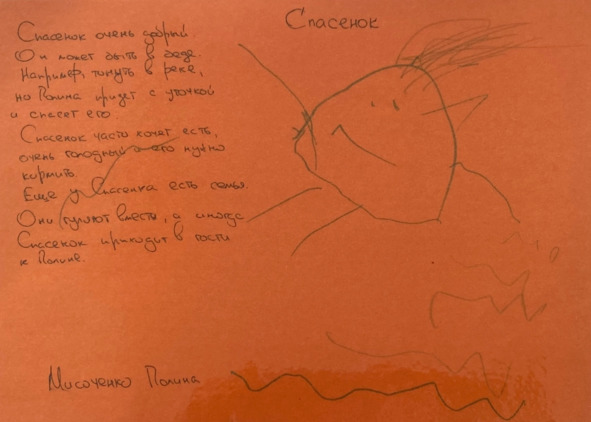 Спасенок
Спасенок очень добрый.
Он может быть в беде.
Например, тонуть в реке,
но Полина придет с уточкой
и спасет его
Спасенок часто хочет есть,
очень голодный и его нужно
кормить.
Еще у Спасенка есть семья.
Они гуляют вместе, а иногда
Спасенок приходит в гости
к Полине.
Мисоченко Полина